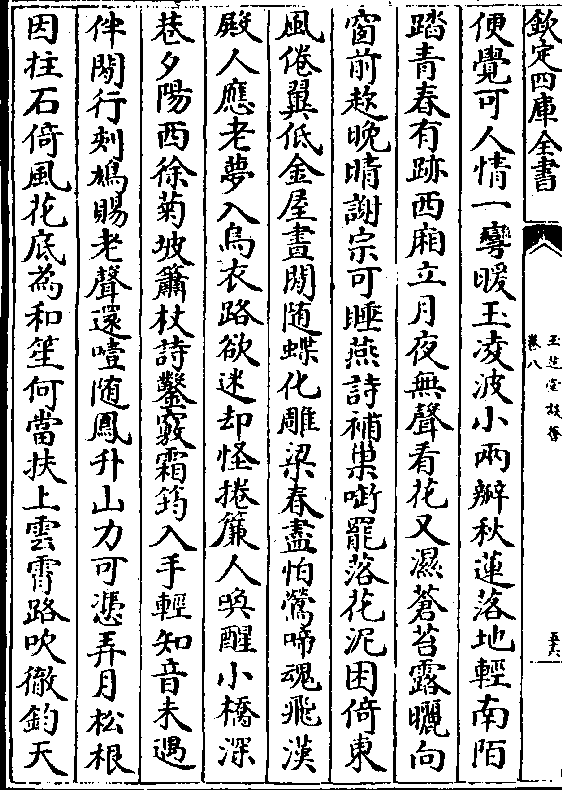 欽定四庫全書
玉芝堂談薈
卷八
便覺可人情一彎暖玉凌波小兩瓣秋蓮落地輕南陌
踏青春有跡西廂立月夜無聲看花又濕蒼苔露曬向
窗前趂晚晴謝宗可睡燕詩補巢啣罷落花泥困倚東
風倦翼低金屋晝閒随蝶化雕梁春盡怕鶯啼魂飛漢
殿人應老夢入烏衣路欲迷却怪捲簾人喚醒小橋深
巷夕陽西徐菊坡簫杖詩鑿竅霜筠入手輕知音未遇
伴閒行刻鳩賜老聲還噎随鳳升山力可憑弄月松根
因柱石倚風花底為和笙何當扶上雲霄路吹徹鈞天